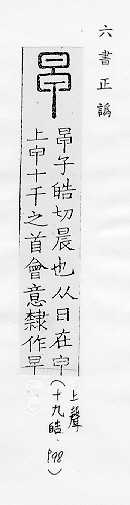 六書正譌
𣅊
𣅊子皓切晨也从日在甲
上甲十干之首會意隸作早
上聲(十九皓.P98)